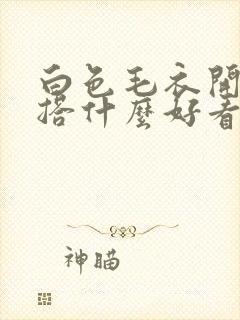 白色毛衣開
搭什麼好看
神瞄